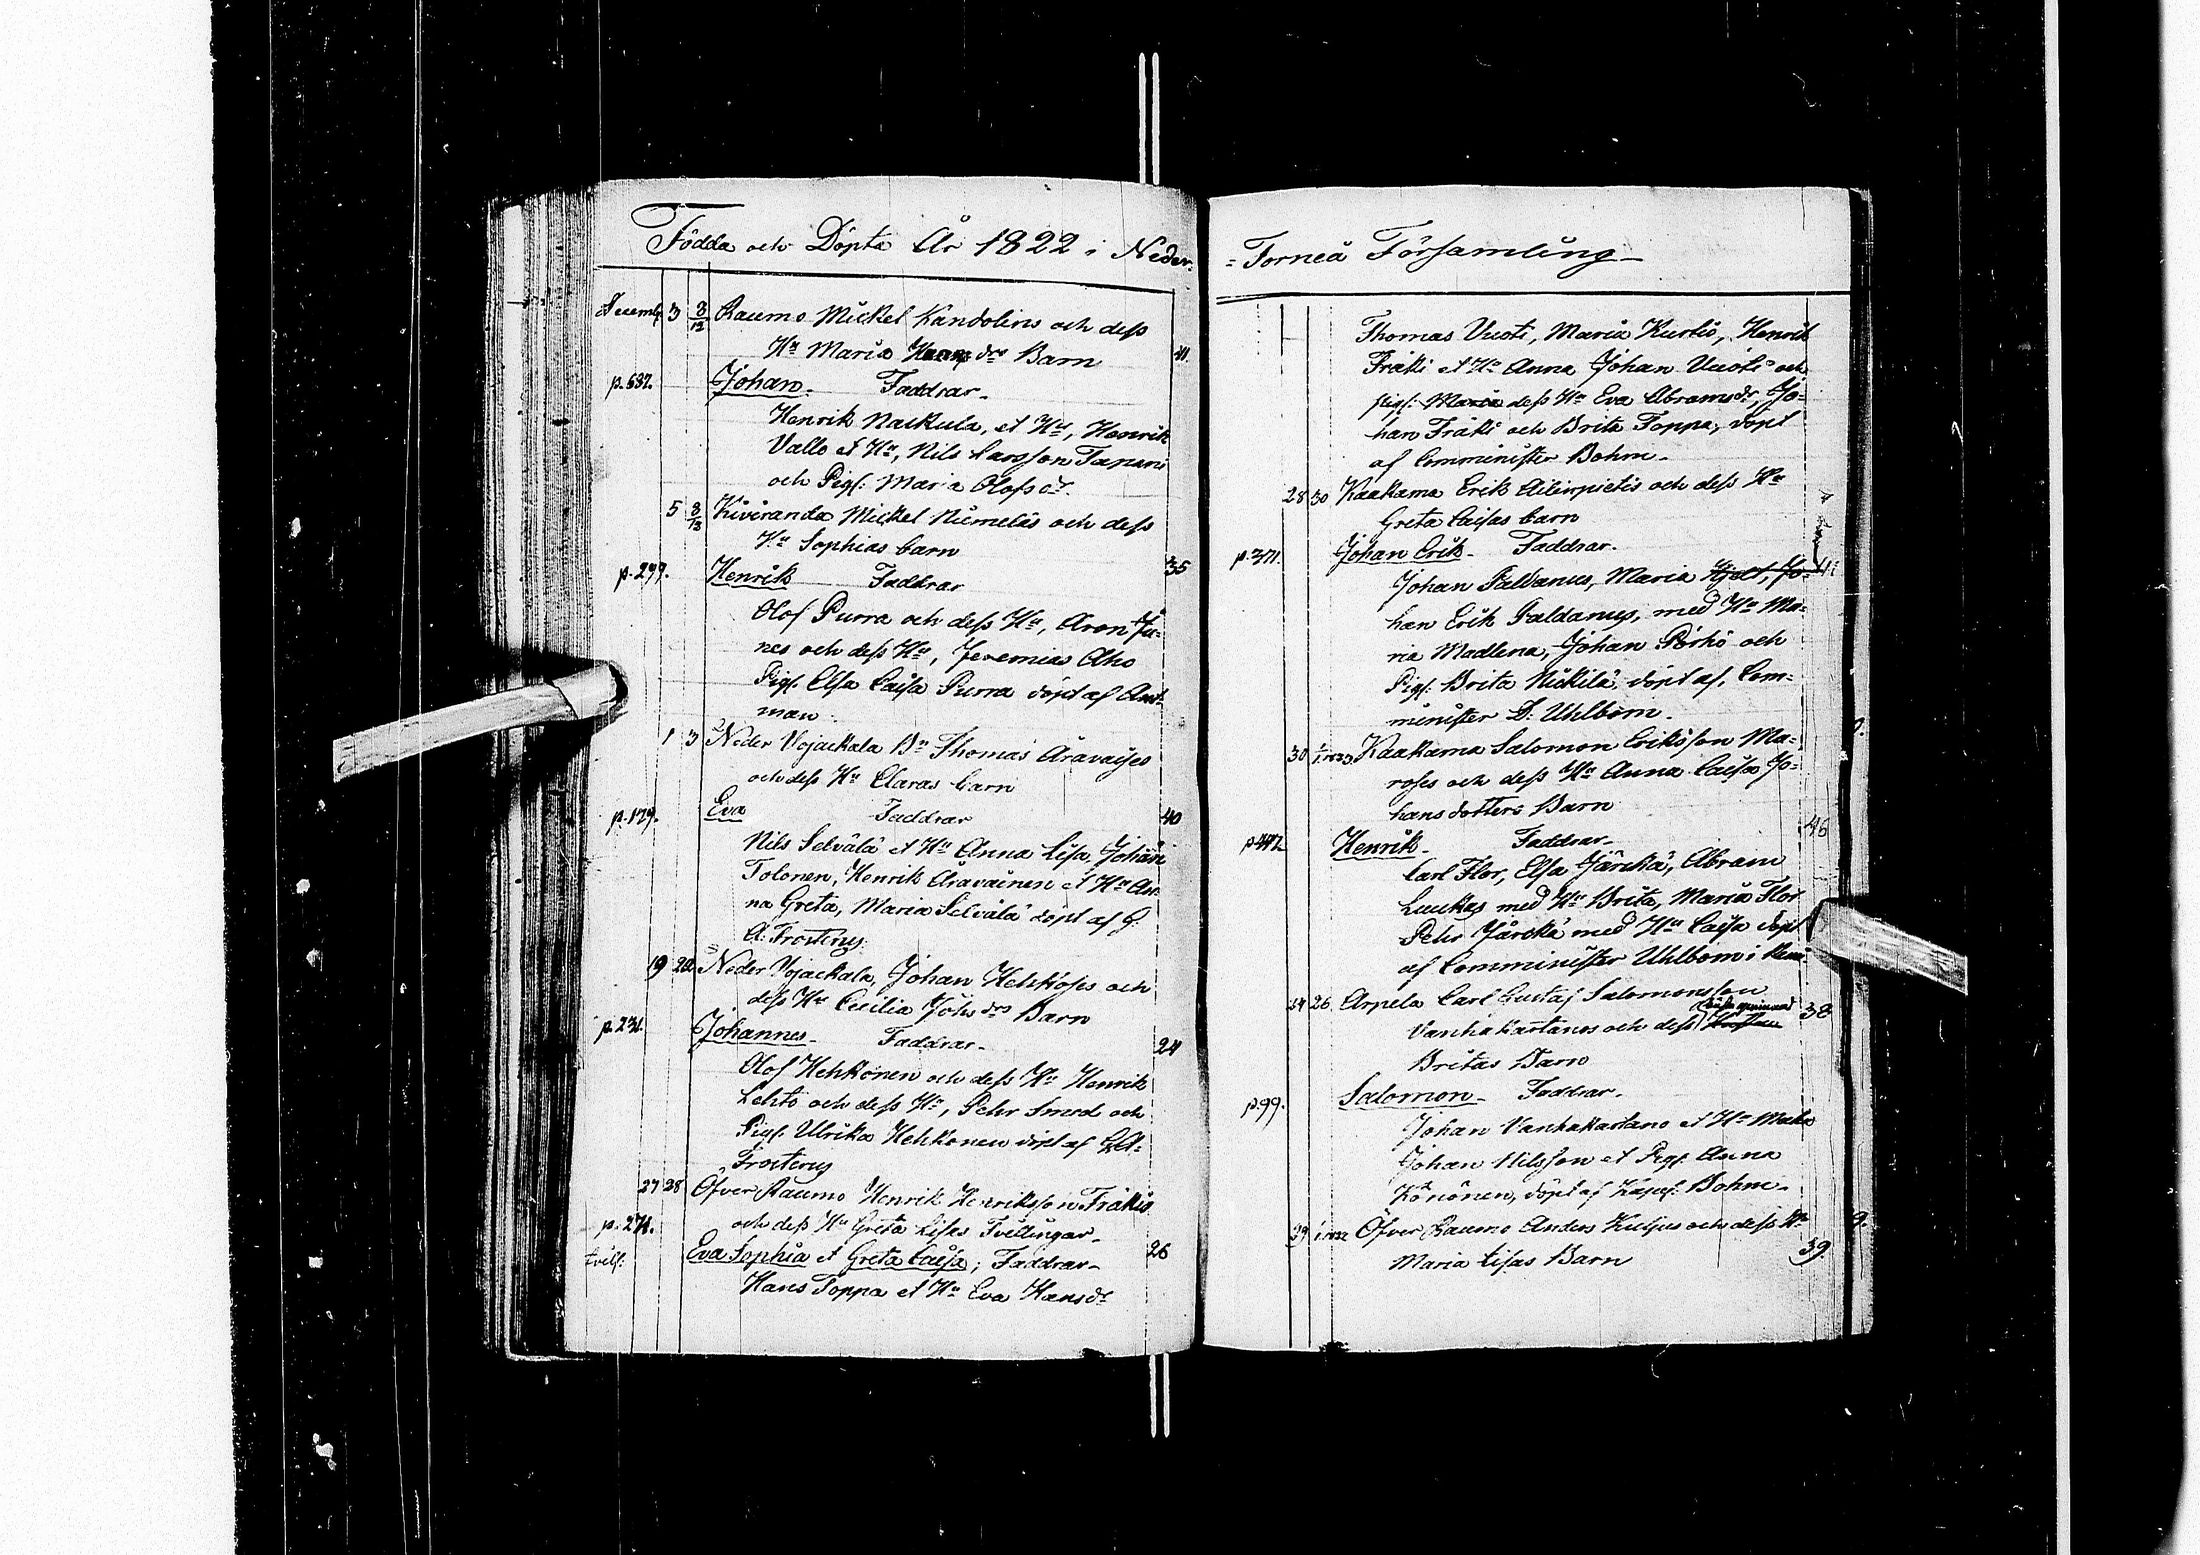 Födda och Döpta År 1822 i Neder-
Decemb. 3 8/12 Raumo Mickel Kandolins och dess
Hu Maria dr Barn 41.
p. 687. Johan. Faddrar.
Henrik Nackula, et Hu, Henrik
Vallo et Hu, Nils Larsson Tanani
och Pig: Maria Olofsdr.
5 8/12 Kiviranda Mickel Niemeläs och dess
Hu Sophias barn
p. 299. Henrik Faddrar 35
Olof Purra och dess Hu, Aron Ju-
nes och dess Hu, Jeremias Aho
Pig. Elsa Caisa Purra döpt af Ant-
man.
1 3 Neder Vojackala Bn Thomas Aravaises
och dess Hu Claras barn
p. 179. Eva Faddrar 40
Nils Selvälä et Hu Anna Lisa, Johan
Tolonen, Henrik Aravainen et Hu An-
na Greta, Maria Selvälä döpt af G.
A. Frosterus.
19 22 Neder Vojackala, Johan Hehkoses och
dess Hu Cecilia Johsdrs Barn
p. 231. Johannes. Faddrar. 24
Olof Hehkonen och dess Hu Henrik
Lehto och dess Hu, Pehr Smed och
Pig. Ulrika Hehkonen döpt af G.A.
Frosterus
27 28 Öfver Raumo Henrik Henriksson Fräkis
p. 271. och dess Hu Greta Lisas Tvillingar.
tvill: Eva Sophia et Greta Caisa; Faddrar. 26
Hans Toppa et Hu Eva Hansdr
=Torneå Församling
Thomas Vuoti, Maria Kurtio, Henrik
Fräki et Hu Anna Johan Vuoti och
pig: Maria dess Hu Eva Abramsdr, Jo-
han Fräki och Brita Toppa, döpt
af Comminister Bohm.
28 30 Kaakama Erik Ailinpietis och dess Hu
Greta Caisas barn
p. 371. Johan Erik. Faddrar.
Johan Paldanus, Maria Hjelt, Jo-
han Erik Paldanus, med Hu Ma-
ria Madlena, Johan Pörhö och
Pig: Brita Nickilä, döpt af, Com-
minister D. Uhlbom.
30 1/1 1823. Kaakama Salomon Eriksson Ma-
roses och dess Hu Anna Caisa Jo-
hansdotters Barn
p. 442 Henrik. Faddrar. 46
Carl Flor, Elsa Järckä, Abram
Luukas med Hu Brita, Maria Flor
Pehr Järckä med Hu Caisa döpt
af Comminister Uhlbom i Kemi
24 26 Arpela Carl Gustaf Salomonsson
Vanhakartanos och dess 38
Britas Barn
p. 99. Salomon. Faddrar.
Johan Vanhakartano et Hu
Johan Nilsson et Pig. Anna
Könönen, döpt af Kapel. Bohm.
29 Öfver Raumo Anders Kuljus och dess Hu
Maria Lisas Barn 39.